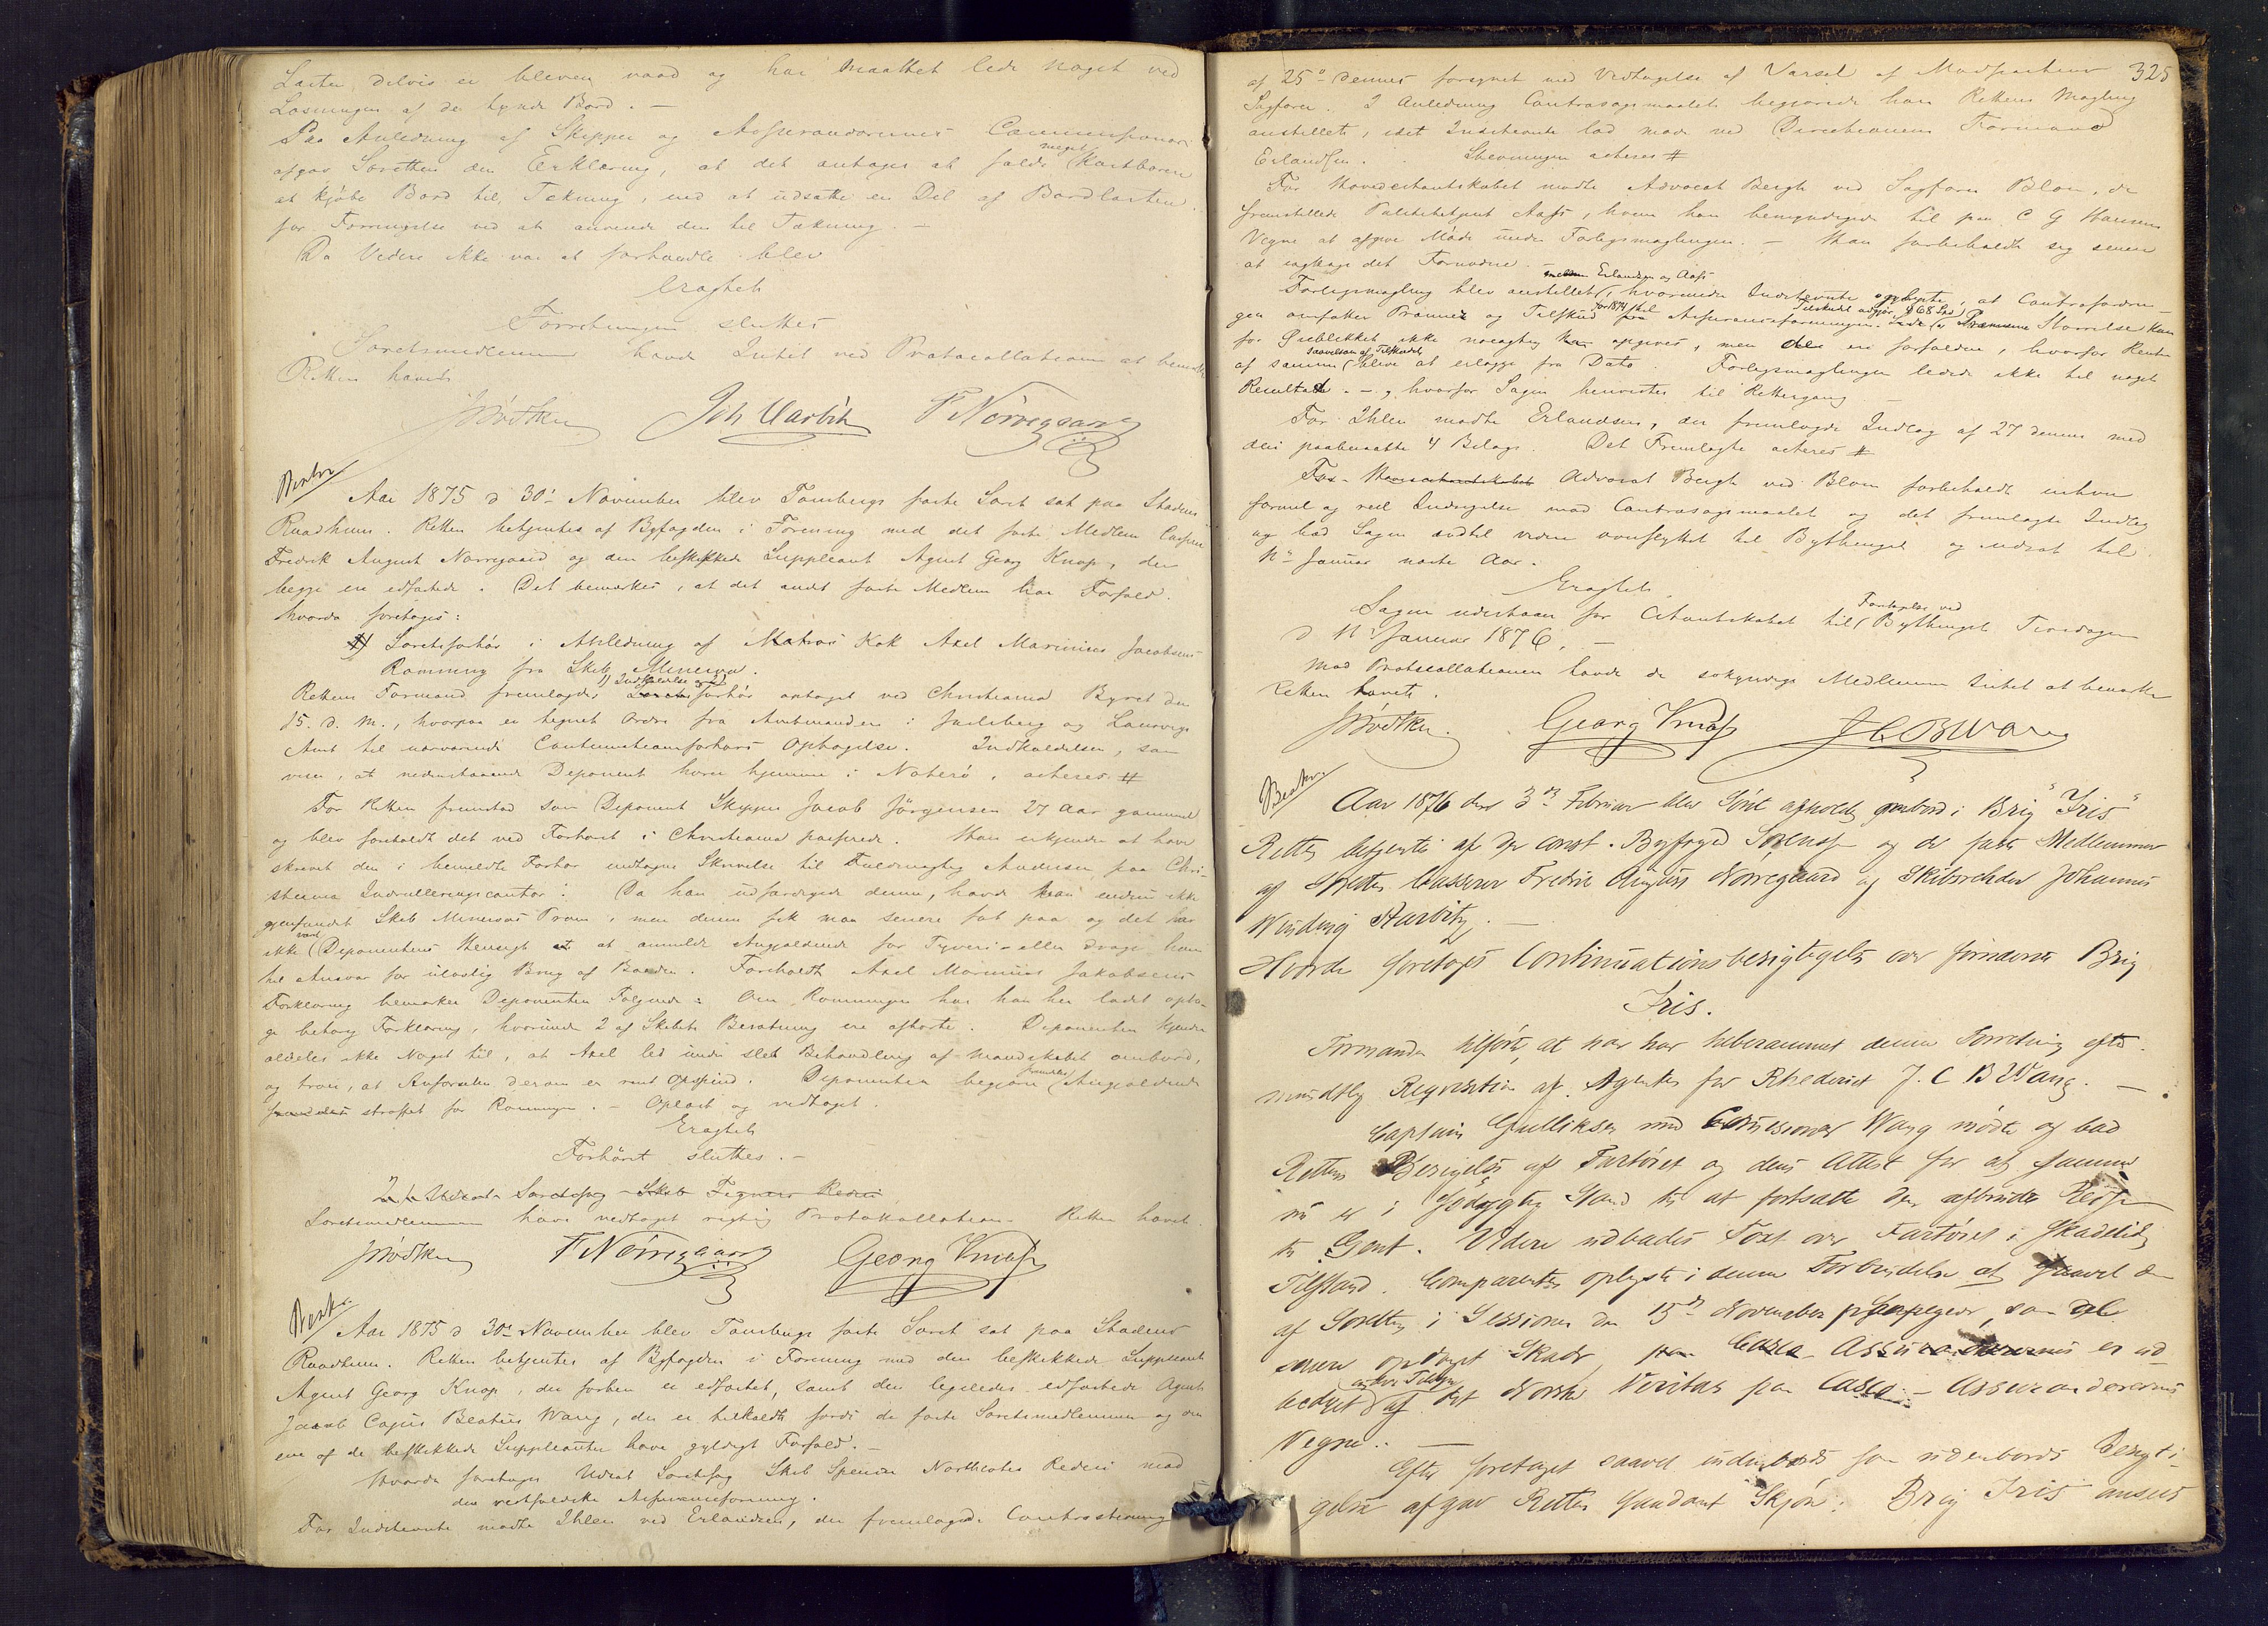 Lasten delvis er bleven vaad og har maattet lide noget ved
Losningen af de tynde Bord. —
Paa Anledning af Skipper og Assurandørernes Commissionær
afgav Søretten den Erklæring, at det antages at falde meget kostbarere
at kjøbe Bord til Tækning, end at udsætte en Del af Bordlasten
for Forringelse ved at anvende den til Tækning. —
Da Videre ikke var at forhandle blev
Eragtet
Forretningen sluttes
Søretsmedlemmerne havde Intet ved Protocollationen at bemærke
Retten hævet
Joh Aarbitz F Nørregaard
Aar 1875 d 30te November blev Tønsbergs faste Søret sat paa Stadens
Raadhuus. Retten betjentes af Byfogden i Forening med det faste Medlem Casserer
Fredrik August Nørregaard og den beskikkede Suppleant Agent Georg Knap, der
begge ere edfæstede. Det bemærkes, at det andet faste Medlem har Forfald.
Hvorda foretoges:
Søretsforhør i Anledning af Matros Kok Axel Marinius Jacobsens
Rømning fra Skib Minerva.
Rettens Formand fremlagde 1) Indkaldelse og 2) forhør optaget ved Christiania Byret den
15. d. M., hvorpaa er tegnet Ordre fra Amtmanden i Jarlsberg og Laurvigs
Amt til nærværende Continuationsforhørs Optagelse. Indkaldelsen, som
viser, at nedenstaaende Deponent hører hjemme i Nøterø, acteres #
For Retten fremstod som Deponent Skipper Jacob Jörgensen 27 Aar gammel
og blev foreholdt det ved Forhøret i Christiania passerede. Han erkjender at have
skrevet den i bemeldte Forhør indtagne Skrivelse til Fuldmægtig Andersen paa Chri-
stiania Indrulleringscontor. Da han udfærdigede denne, havde man endnu ikke
gjenfundet Skib Minervas Pram, men denne fik man senere fat paa og det har
ikke været Deponentens Hensigt at anmelde Angjældende for Tyveri eller drage ham
til Ansvar for ulovlig Brug af Baaden. Foreholdt Axel Marinius Jakobsens
Forklaring bemærker Deponenten Følgende: Om Rømningen har han her ladet opta-
ge behørig Forklaring, hvorunder 2 af Skibets Besætning ere afhørte. Deponenten kjender
aldeles ikke Noget til, at Axel led under slet Behandling af Mandskabet ombord,
og troer, at Anførselen derom er rent Opspind. Deponenten begjærer Angjældende
straffet for Rømningen. — Oplæst og vedtaget.
Eragtet
Forhöret sluttes. —
Søretsmedlemmerne have vedtaget rigtig Protokollation. Retten hævet.
F Nørregaard Georg Knap
Aar 1875 d 30te November blev Tønsbergs faste Søret sat paa Stadens
Raadhuus. Retten betjentes af Byfogden i Forening med den beskikkede Suppleant
Agent Georg Knap, der forhen er edfæstet, samt den ligeledes edfæstede Agent
Jacob Wang, der er tilkaldt fordi de faste Søretsmedlemmer og den
ene af de beskikkede Suppleanter have gyldigt Forfald. —
Hvorda foretoges Udsat Søretssag Skib Spencer Northcotes Rederi mod
den vestfoldske Assuranceforening.
For Indstevnte mødte Ihlen ved Erlandsen, der fremlagde Contrastevning
325
af 25de dennes forsynet med Vedtagelse af Varsel af Modpartens
Sagfører. I Anledning Contrasøgsmaalet begjærede han Rettens Mægling
anstillet, idet Indstevnte lod møde ved Directionens Formand
Erlandsen. Stevningen acteres #
For Hovedcitantskabet mødte Advocat Bergh ved Sagfører Blom, der
fremstillede Politibetjent Aass, hvem han bemyndigede til paa C G Hansens
Vegne at afgive Møde under Forligsmæglingen. — Han forbeholdt sig senere
at iagttage det Fornødne. —
Forligsmægling blev anstillet mellem Erlandsen og Aass, hvorunder Indstevnte oplyste, at Contrafordrin-
gen omfatter Præmie og Tilskud for 1874 til Assuranceforeningen. Tilskudet udgjør 68 Størrelse kan
for Øieblikket ikke nøiagtig opgives, men ere forfaldne, hvorfor Renter
af samme saavelsom af Tilskudet bliver at erlægge fra Dato. Forligsmæglingen ledede ikke til noget
Resultat. —, hvorfor Sagen henvistes til Rettergang. —
For Ihlen mødte Erlandsen, der fremlagde Indlæg af 27 dennes med
deri paaberaabte 4 Bilage. Det Fremlagte acteres #
Advocat Bergh ved Blom forbeholdt enhver
formel og reel Indsigelse mod Contrasøgsmaalet og det fremlagte Indlæg
og bad Sagen indtil videre overflyttet til Bythinget og udsat til
11te Januar næste Aar.
Eragtet
Sagen udsættes for Citantskabet til Foretagelse ved Bythinget Tirsdagen
d 11te Januar 1876. —
Mod Protocollationen havde de søkyndige Medlemmer Intet at bemærke
Retten hævet.
Georg Knap J C B Wang
Aar 1876 den 3die Februar blev Søret afholdt ombord i Brig "Iris"
Retten betjentes af den const. Byfoged Sørenssen og de faste Medlemmer
af Søretten Casserer Fredrik August Nörregaard og Skibsrheder Johannes
Winding Aarbitz. —
Hvorda foretoges Continuationsbesigtigelse over førnævnte Brig
Iris.
Formanden tilførte, at han har tilberammet denne Forretning efter
mundtlig Reqvisition af Agenten for Rhederiet J. C B Wang. —
Captain Gulliksen med Commissionær Wang mødte og bad
Rettens Besigtigelse af Fartöiet og dens Attest for at samme
nu er i Södygtig Stand til at fortsætte den afbrudte Reise
til Gent. Videre udbades Taxt over Fartöiet i skadeslidt
Tilstand. Comparenten oplyste i denne Forbindelse at saavel den
af Søretten i Sessionen den 15de November paapegede, som de
senere opdaget Skade, er ud-
bedret under Tilsyn af Det Norske Veritas paa Casco-Assurandørernes
Vegne. —
Efter foretaget saavel indenbords som udenbords Besigti-
gelse afgav Retten saadant Skjøn: Brig Iris ansees